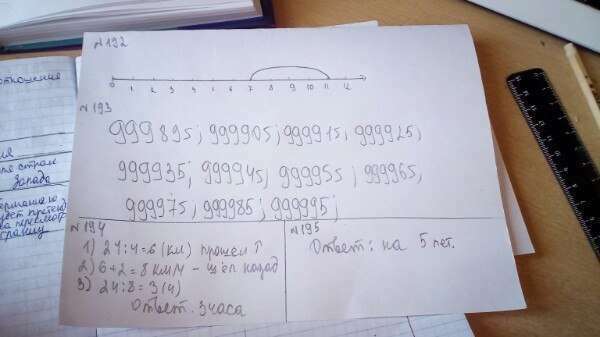 отношения
№192
0 1 2 3 4 5 6 7 8 9 10 11 12
№193
999895; 999905; 999915; 999925;
999935; 999945; 999955; 999965;
999975; 999985; 999995;
№194
1) 24:4=6 (км) прошел Т
2) 6+2=8 км/ч - шёл назад
3) 24:8=3 (ч)
Ответ. 3 часа
№195
Ответ: на 5 лет.
стран
Запада